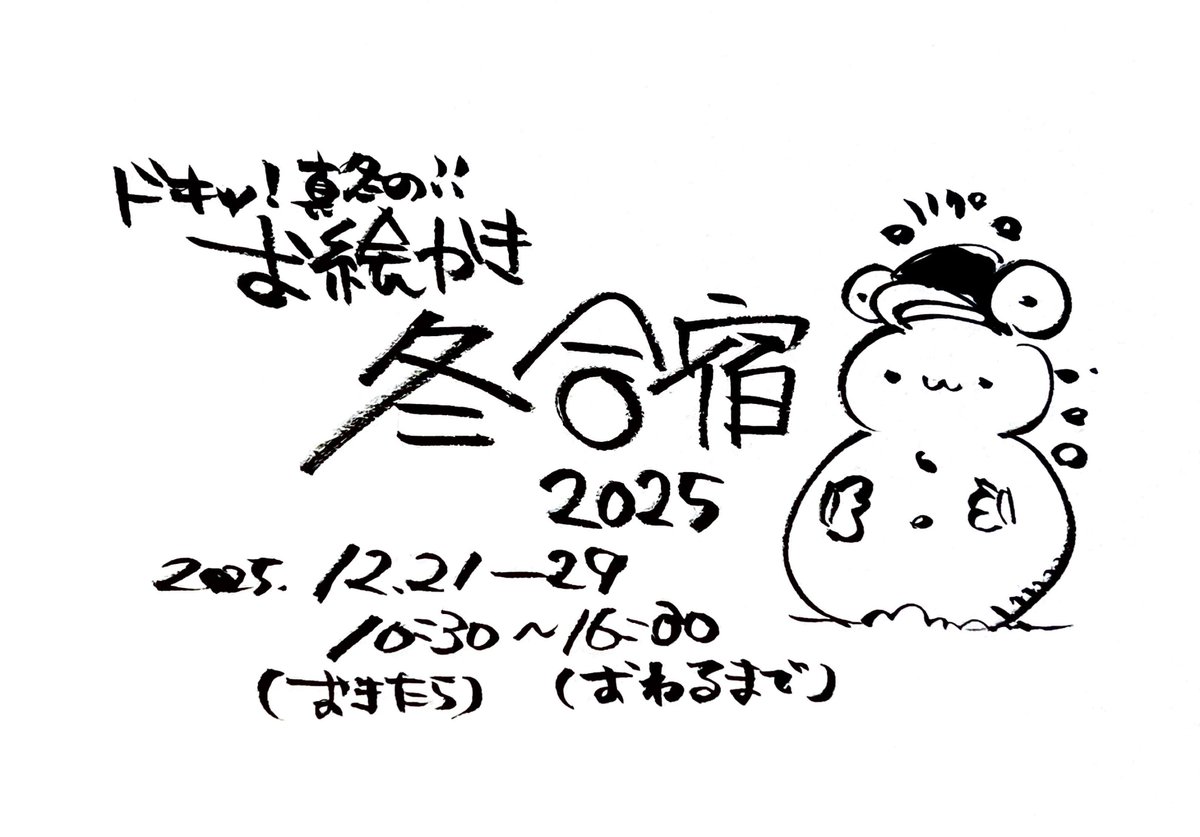 ドキッ♥!真冬の!!
お絵かき
冬合宿
2025
2025.12.21—29
10:30～16:00
(おきたら) (おわるまで)